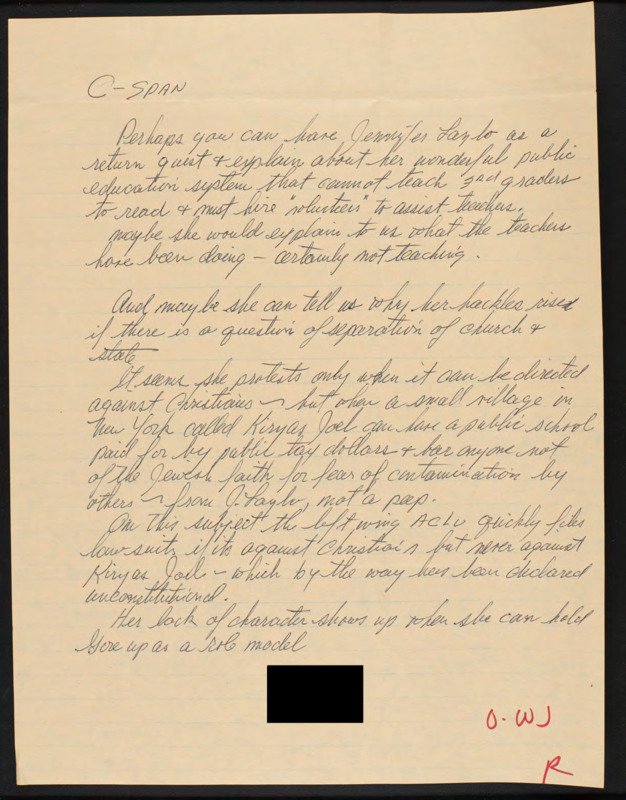 C-SPAN
Perhaps you can have Jennifer Laylo as a
return guest & explain about her wonderful public
education system that cannot teach 3rd graders
to read & must hire "volunteers" to assist teachers.
maybe she would explain to us what the teachers
have been doing - certainly not teaching.
And maybe she can tell us why her hackles rises
if there is a question of separation of church &
state
It seems she protests only when it can be directed
against Christians - but when a small village in
New York called Kiryas Joel can have a public school
paid for by public tax dollars & bar anyone not
of the Jewish faith for fear of contamination by
others - from J. Laylo, not a peep.
On this subject the left wing ACLU quickly files
law suits if its against Christians but never against
Kiryas Joel - which by the way has been declared
unconstitutional.
Her lack of character shows up when she can hold
Gore up as a role model
O. WJ
R